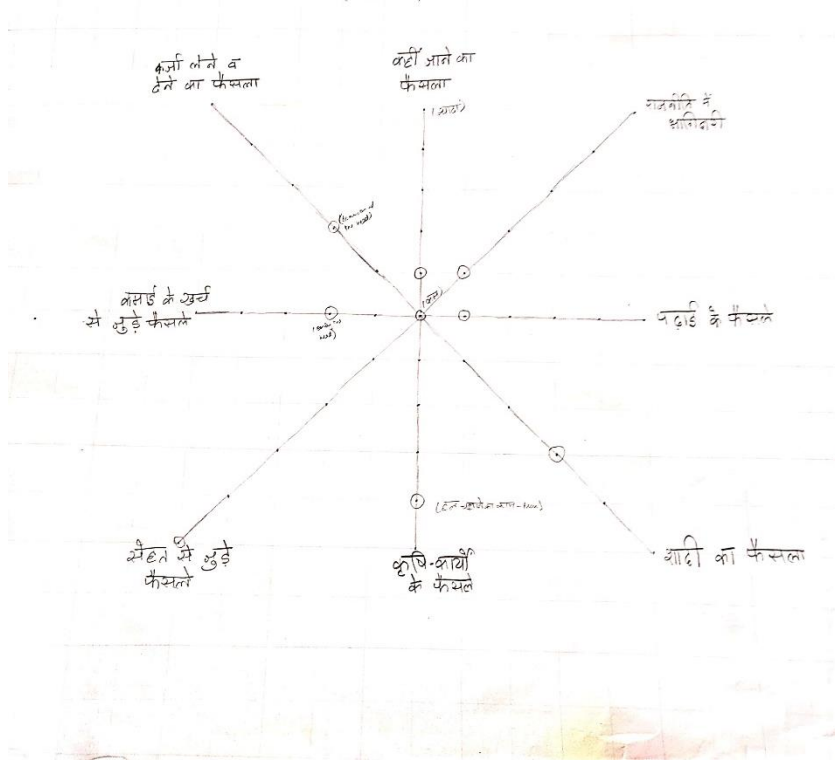 कर्जा लेने व
देने का फैसला
कहीं जाने का
फैसला
(ज्यादा)
राजनीति में
भागिदारी
(कम)
कमाई के खर्च
से जुड़े फैसले
पढ़ाई के फैसले
सेहत से जुड़े
फैसले
कृषि-कार्यों
के फैसले
शादी का फैसला